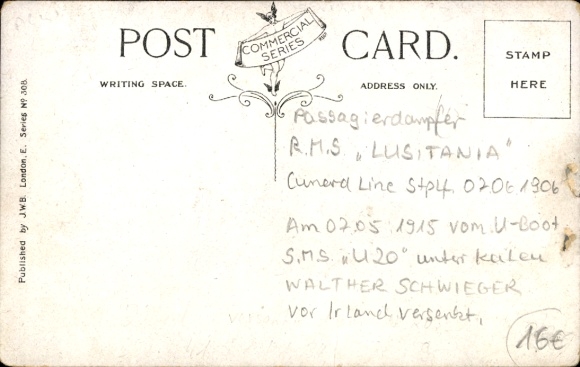 POST CARD.
COMMERCIAL
SERIES
STAMP
HERE
WRITING SPACE.
ADDRESS ONLY.
Published by J.W.B. London, E. Series Nº 308.
Passagierdampfer
R.M.S. „LUSITANIA"
Cunard Line Stplf. 07.06 1906
Am 07.05.1915 vom U-Boot
S.M.S. „U20" unter KaLeu
WALTHER SCHWIEGER
vor Irland versenkt.
16€